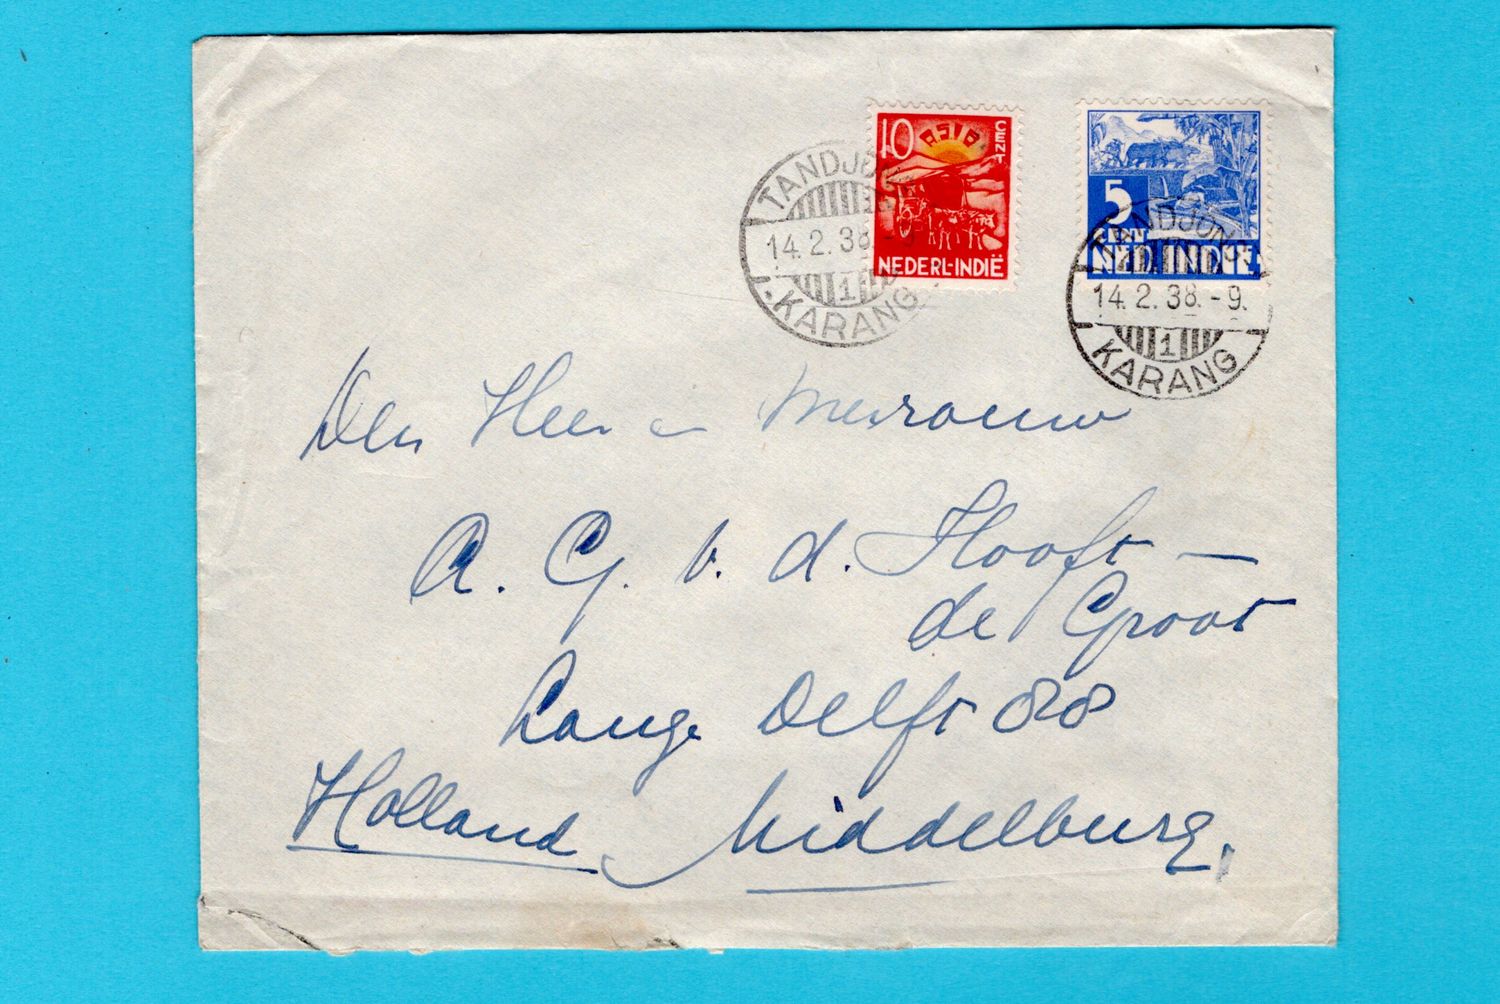 10 CENT
ASIB
NEDERL-INDIË
5
CENT
NED INDIE
TANDJONG
14.2.38.-9.
1
KARANG
TANDJONG
14.2.38.-9.
1
KARANG
Den Heer en Mevrouw
A. G. v. d. Hooft —
de Groot
Lange Delft 88
Holland Middelburg.